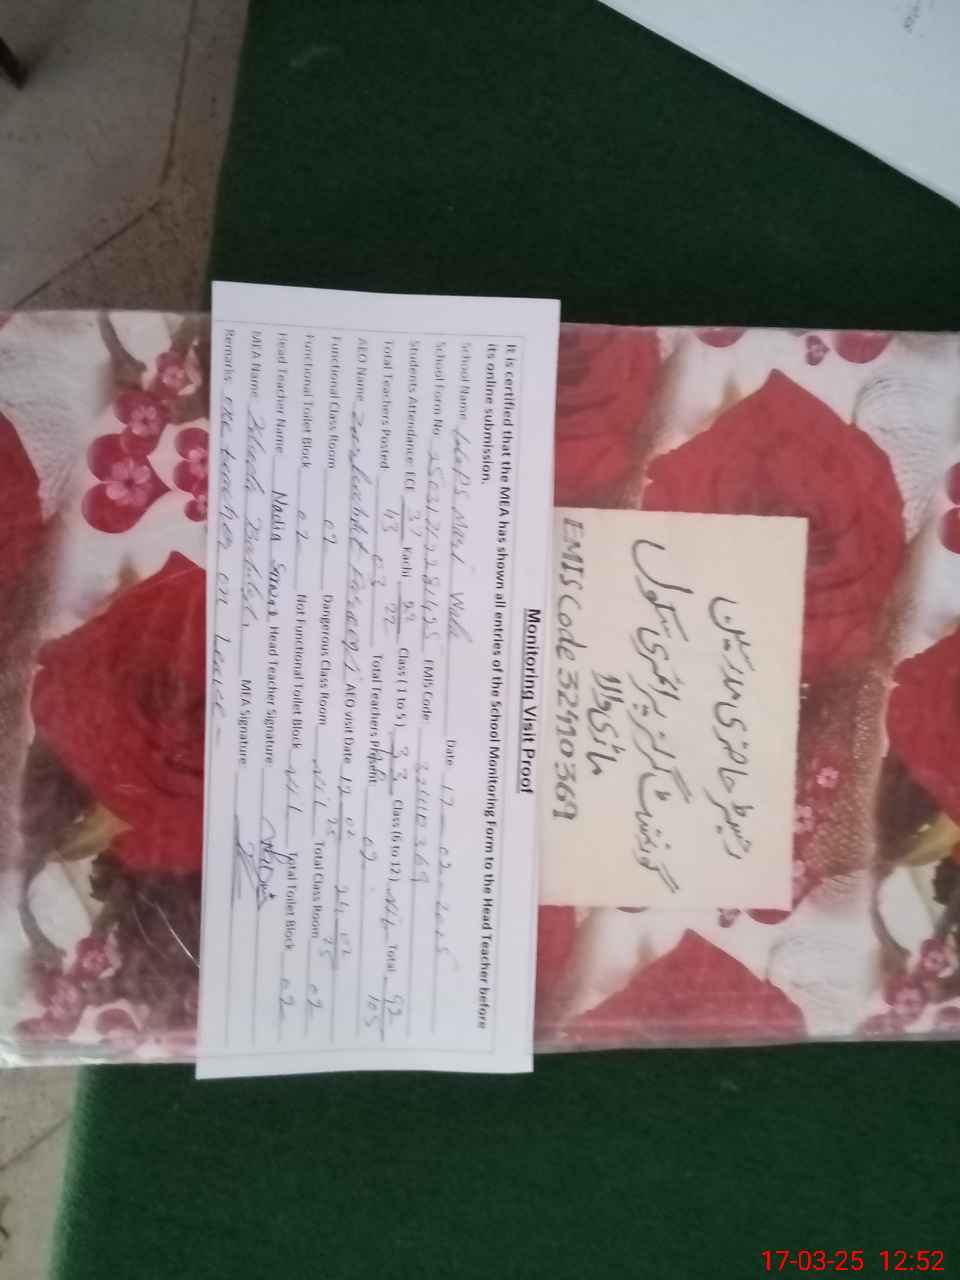 Monitoring Visit Proof
It is certified that the MEA has shown all entries of the School Monitoring Form to the Head Teacher before
its online submission.
School Name Wala Date 17 - 02 - 2025
School Form No. EMIS Code: 32410369
Students Attendance: ECE 37 Kachi 22 Class (1 to 5) 33 Class (6 to 12) Nil Total 92
43 22 105
Total Teachers Posted 03 Total Teachers Present: 02
AEO Name AEO visit Date
Functional Class Room 02 Dangerous Class Room Nil Total Class Room 02
Functional Toilet Block 02 Not Functional Toilet Block Nil Total Toilet Block 02
Head Teacher Name Nadia Head Teacher Signature:
MEA Name MEA Signature:
Remarks: one teacher on Leave -
رجسٹر حاضری مدرسین
گورنمنٹ گرلز پرائمری سکول
EMIS Code 32410369
17-03-25 12:52